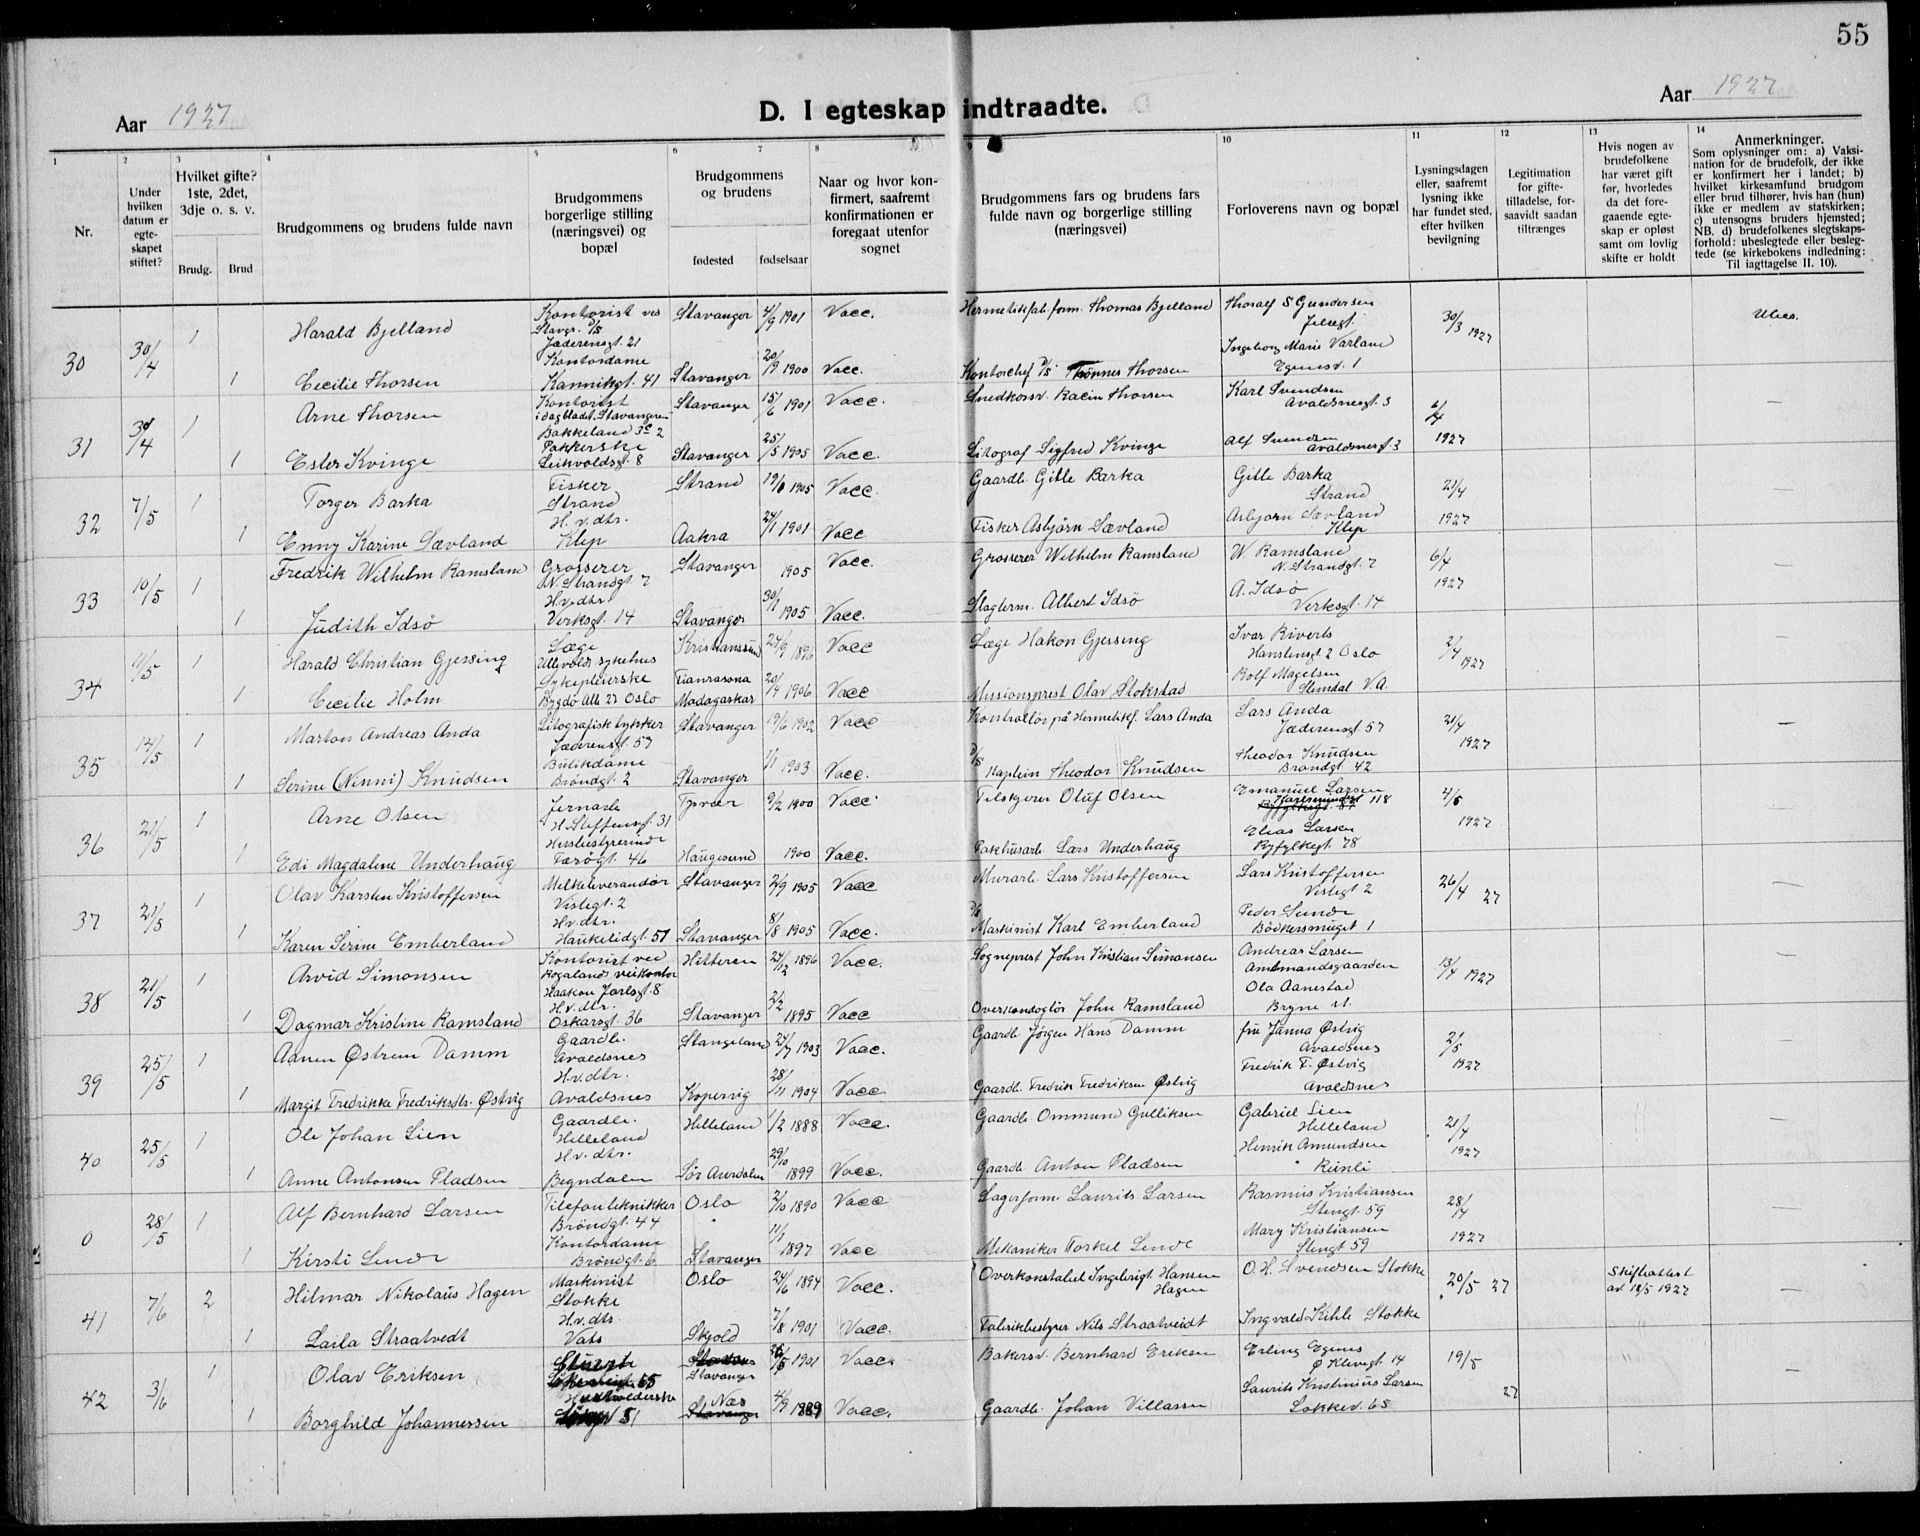 55
Aar 1927
D. I egteskap indtraadte.
Aar 1927
1 2 3 4 5 6 7 8 9 10 11 12 13 14
Nr.
Under hvilken datum er egte-skapet stiftet?
Hvilket gifte? 1ste, 2det, 3dje o. s. v.
Brudg. Brud
Brudgommens og brudens fulde navn
Brudgommens borgerlige stilling (næringsvei) og bopæl
Brudgommens og brudens
fødested fødselsaar
Naar og hvor kon-firmert, saafremt konfirmationen er foregaat utenfor sognet
Brudgommens fars og brudens fars fulde navn og borgerlige stilling (næringsvei)
Forloverens navn og bopæl
Lysningsdagen eller, saafremt lysning ikke har fundet sted, efter hvilken bevilgning
Legitimation for gifte-tilladelse, for-saavidt saadan tiltrænges
Hvis nogen av brudefolkene har været gift før, hvorledes da det fore-gaaende egte-skap er opløst samt om lovlig skifte er holdt
Anmerkninger.
Som oplysninger om: a) Vaksi-nation for de brudefolk, der ikke er konfirmert her i landet; b) hvilket kirkesamfund brudgom eller brud tilhører, hvis han (hun) ikke er medlem av statskirken; c) utensogns bruders hjemsted; NB. d) brudefolkenes slegtskaps-forhold: ubeslegtede eller besleg-tede (se kirkebokens indledning: Til iagttagelse II. 10).
30 30/4 1 Harald Bjelland Kontorist ved Stavgr. D/S Jæderensgt. 21 Stavanger 4/9 1901 Vacc. Hermetikfab.form. Thomas Bjelland Thoralf S Gundersen 30/3 1927 Ubes.
1 Cecilie Thorsen Kontordame Kannikgt. 41 Stavanger 20/9 1900 Vacc. Kontorchef D/S Thönnes Thorsen Ingeborg Marie Varland Egenesv. 1
31 30/4 1 Arne Thorsen Kontorist i dagbladt. Stavangeren Bakkeland 3c 2 Stavanger 15/6 1901 Vacc. Snedkersv. Racin Thorsen Karl Svendsen Avaldsnesgt. 3 1927
1 Ester Kvinge Pakkerske Leikvoldsgt. 8 Stavanger 25/5 1905 Vacc. Litograf Sigfred Kvinge Alf Svendsen Avaldsnesgt. 3
32 7/5 1 Torger Barka Fisker Strand Strand 1905 Vacc. Gaardb. Gitle Barka Gitle Barka Strand 21/4 1927 —
1 Enny Karine Sævland H.v.dtr. Klep Aakra 24/11 1901 Vacc. Fisker Asbjørn Sævland Asbjørn Sævland Klep
33 10/5 1 Fredrik Wilhelm Ramsland Grosserer N. Strandgt. 7 Stavanger 1905 Vacc. Grosserer Wilhelm Ramsland W. Ramsland N. Strandgt. 7 6/4 1927 —
1 Judith Idsö H.v.dtr. Verksgt. 14 Stavanger 30/11 1905 Vacc. Slagterm. Albert Idsö A. Idsö Verksgt. 14
34 11/5 1 Harald Christian Gjessing Læge Ullevolds sykehus Kristianssund 24/9 1896 Vacc Læge Hakon Gjessing Ivar Riverts Hansteensgt 2 Oslo 2/4 1927 —
1 Cecilie Holm Sykepleierske Bygdö Alle 27 Oslo Madagaskar 20/4 1906 Vacc Missionsprest Olav Stokstad Rolf Magelsen Slemdal V.A.
35 14/5 1 Marton Andreas Anda Litografisk trykker Jæderensgt. 57 Stavanger 19/6 1902 Vacc Kontrollör på Hermetikf. Lars Anda Lars Anda Jæderensgt 57 21/4 1927 —
1 Serine (Ninni) Knudsen Butikdame Bröndgt. 2 Stavanger 1/11 1903 Vacc. D/S Kaptein Theodor Knudsen Theodor Knudsen Bröndgt. 42
36 21/5 1 Arne Olsen Jernarb. H. Steffensgt. 31 Tysvær 9/2 1900 Vacc. Tilskjerer Oluf Olsen Emanuel Larsen 118 4/5 1927 —
1 Edi Magdalene Underhaug Husbestyrerinde Færögt. 46 Haugesund 1900 Vacc. Pakhusarb. Lars Underhaug Elias Larsen Ryfylkegt 78
37 21/5 1 Olav Karsten Kristoffersen Melkeleverandör Vistegt. 2 Stavanger 2/9 1905 Vacc Murarb. Lars Kristoffersen Lars Kristoffersen Vistegt 2 26/4 27 —
1 Karen Serine Emberland H.v.dtr. Haukelidgt. 57 Stavanger 8/8 1905 Vacc. D/S Maskinist Karl Emberland Peder Lunde Bödkersmuget 1
38 21/5 1 Arvid Simonsen Kontorist ved Rogalands veikontor Haakon Jarlsgt. 8 Hitteren 27/12 1896 Vacc. Sogneprest John Kristian Simonsen Andreas Larsen Amtmandsgaarden 13/4 1927 —
1 Dagmar Kristine Ramsland H.v.dtr. Oskarsgt. 36 Stavanger 2/2 1895 Vacc John Ramsland Ola Aanestad Bryne st.
39 25/5 1 Aanen Østrem Damm Gaardb. Avaldsnes Stangeland 27/7 1903 Vacc. Gaardb. Jörgen Hans Damm fru Janna Østvig Avaldsnes 2/5 1927 —
1 Margit Fredrikke Fredriksdtr. Østvig H.v.dtr. Avaldsnes Kopervig 28/11 1904 Vacc Gaardb. Fredrik Fredriksen Østvig Fredrik F. Østvig Avaldsnes
40 25/5 1 Ole Johan Lien Gaardb. Helleland Helleland 1/2 1888 Vacc. Gaardb. Ommund Gulliksen Gabriel Lien Helleland 21/4 1927 —
1 Anne Antonsen Pladsen H.v.dtr. Begndalen Sör Aurdalen 29/10 1899 Vacc. Gaardb. Anton Pladsen Henrik Amundsen
0 28/5 1 Alf Bernhard Larsen Telefontekniker Bröndgt. 44 Oslo 2/10 1890 Vacc Lagerform. Laurits Larsen Rasmus Kristiansen Stengt. 59 28/4 1927 —
1 Kirsti Lende Kontordame Bröndgt. 6 Stavanger 11/1 1897 Vacc Mekaniker Torkel Lende Mary Kristiansen Stengt 59
41 7/6 2 Hilmar Nikolaus Hagen Maskinist Stokke Oslo 24/6 1894 Vacc. Overkonstabel Ingebrigt Hansen Hagen O.H. Svendsen Stokke 20/5 27 Skifteattest av 18/5 1927 —
1 Laila Straatvedt H.v.dtr. Vats Skjold 7/8 1901 Vacc. Fabrikbestyrer Nils Straatveidt Ingvald Kihle Stokke
42 3/6 1 Olav Eriksen 55 Stavanger 1901 Vacc. Bakersv. Bernhard Eriksen Erling Egenes Ø Klevegt 14 19/5 27 —
1 Borghild Johannessen Husholderske 51 Næs Stavanger 4/9 1889 Vacc. Gaardb. Johan Villassen Laurits Kristinius Larsen Lokkev. 65